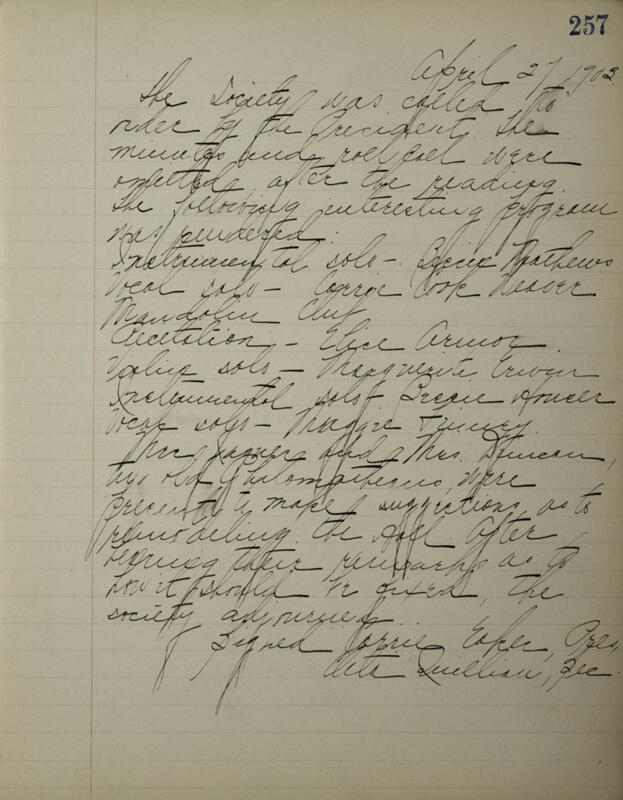 257
April 27, 1903.
The Society was called to
order by the President. The
minutes and roll call were
omitted, after the reading.
The following interesting program
was rendered.
Instrumental solo - Mathews
Vocal solo - Carrie Cook Weaver
Mandolin Club
Recitation - Elise Armor
Violin solo - Marguerite Erwin
Instrumental solo - Houser
Vocal solo - Maggie
Mrs. and Mrs. Duncan,
two old Philomatheans, were
present to make suggestions as to
remodeling the Hall. After
hearing their remarks as to
how it should be fixed, the
society adjourned.
Signed Carrie Pres,
Quillian, Sec.